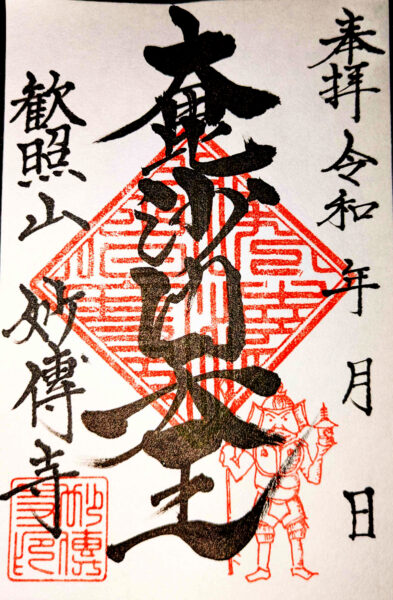 奉拝 令和 年 月 日
大毘沙門天王
歓照山 妙傳寺
妙傳
寺印